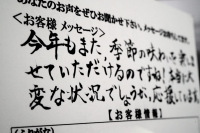 あなたのお声をぜひお聞かせ下さい。メッセージ
<お客様 メッセージ>
今年もまた季節の味わいを楽しま
せていただけるのですね！本当に大
変な状況でしょうが、応援しています
【お客様情報】